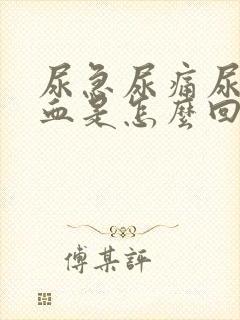 尿急尿痛尿
血是怎麼回
傅某評